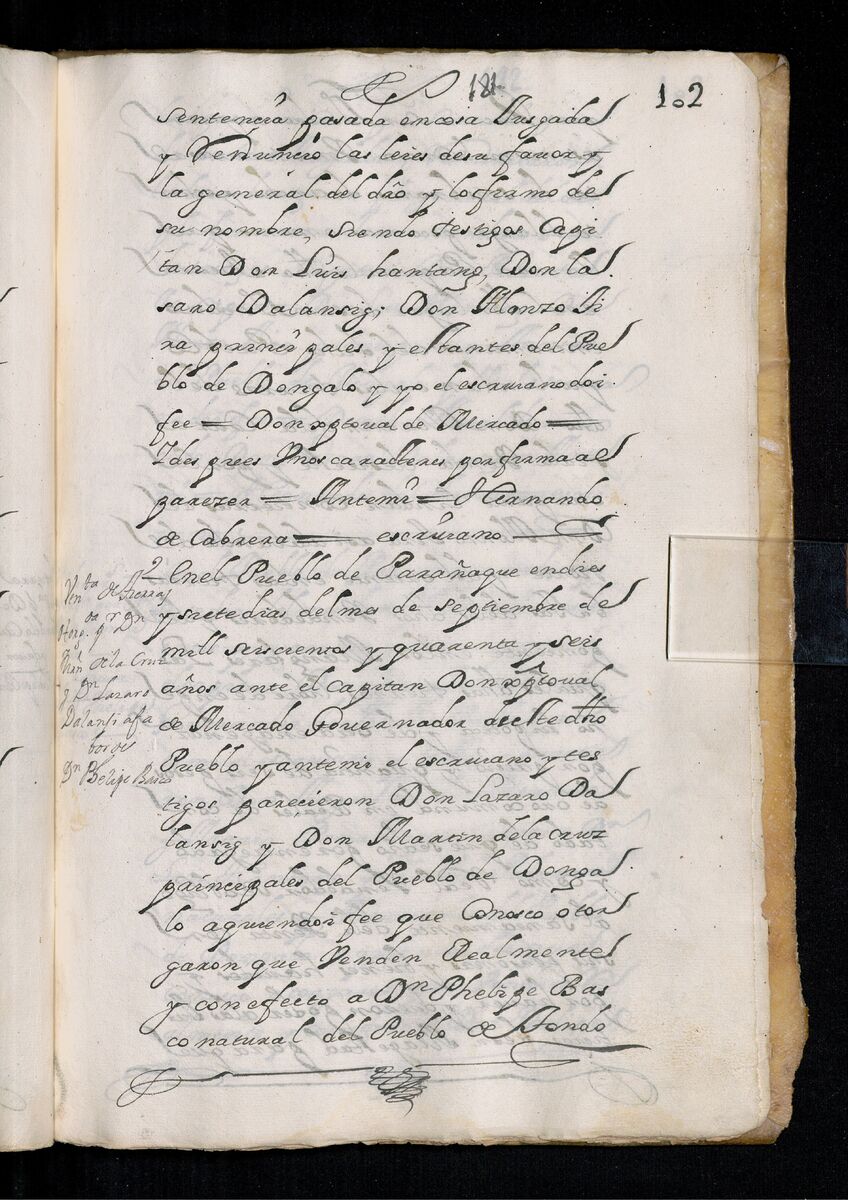 181
102
sentencia pasada en cosa Jusgada
y Renuncio las leies desu favor y
la general del dro y lo firmo de
su nombre, siendo testigos Capi
tan Don Luis hantang, Don la
saro Dalansig; Don Alonzo Ji
ra principales y estantes del Pue
blo de Dongalo y yo el escriuano doi
fee = Don xptoual de Mercado =
I des pues Vnos caracteres por firma al
parezer = Ante mi = Hernando
de Cabrera = escriuano
Enel Pueblo de Parañaque en dies
y siete dias del mes de septiembre de
mill seiscientos y quarenta y seis
años ante el capitan Don xptoual
de Mercado Gouernador de este dho
Pueblo y ante mi el escriuano y tes
tigos parecieron Don Lazaro Da
lansig y Don Martin de la cruz
principales del Pueblo de Donga
lo a quien doi fee que Conosco otor
garon que Venden Realmente
y con efecto a Dn Phelipe Bas
co natural del Pueblo de Tondo
Venta de tierras
Otorgda pr Dn
de la Cruz
y Dn Lazaro
Dalansi afa
bor de
Dn Phelipe Basco